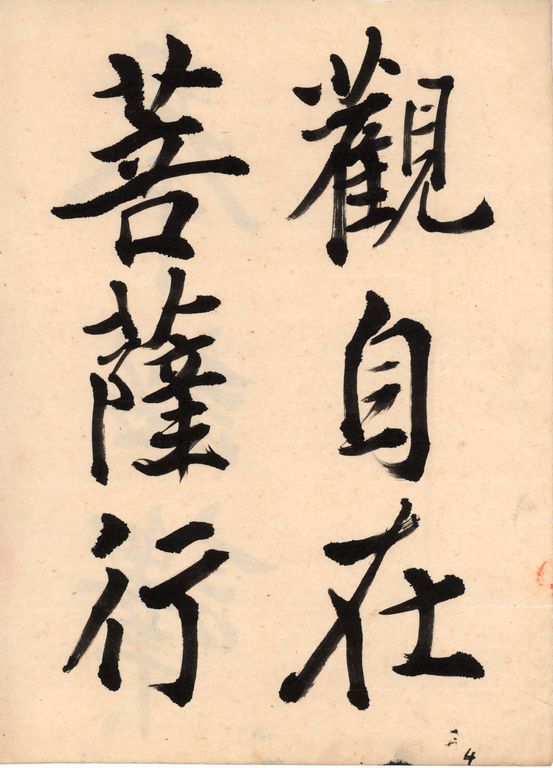 觀自在
菩薩行
4